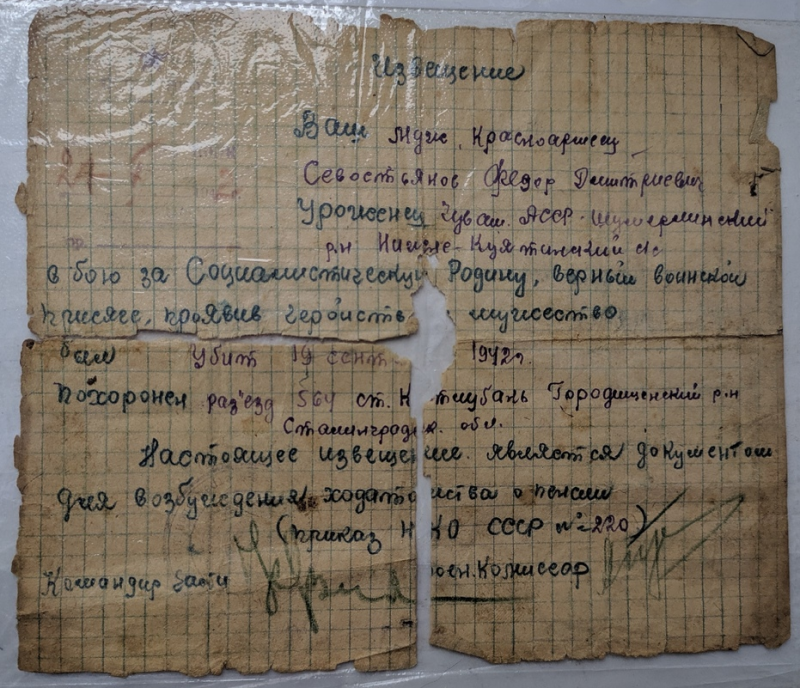 Извещение
Ваш муж, Красноармеец
24
2
Севостьянов Федор Дмитриевич
Уроженец Чуваш. АССР-Шумерлинский
р-н
в бою за Социалистическую Родину, верный воинской
присяге, проявив геройств мужество
был Убит 19 сент 1942г.
похоронен раз'езд 564 ст. К тлубань Городищенский р-н
Сталинградск. обл.
Настоящее извещение является документом
для возбуждения ходатайства о пенсии
(приказ НКО СССР №220)
Командир части воен. Комиссар